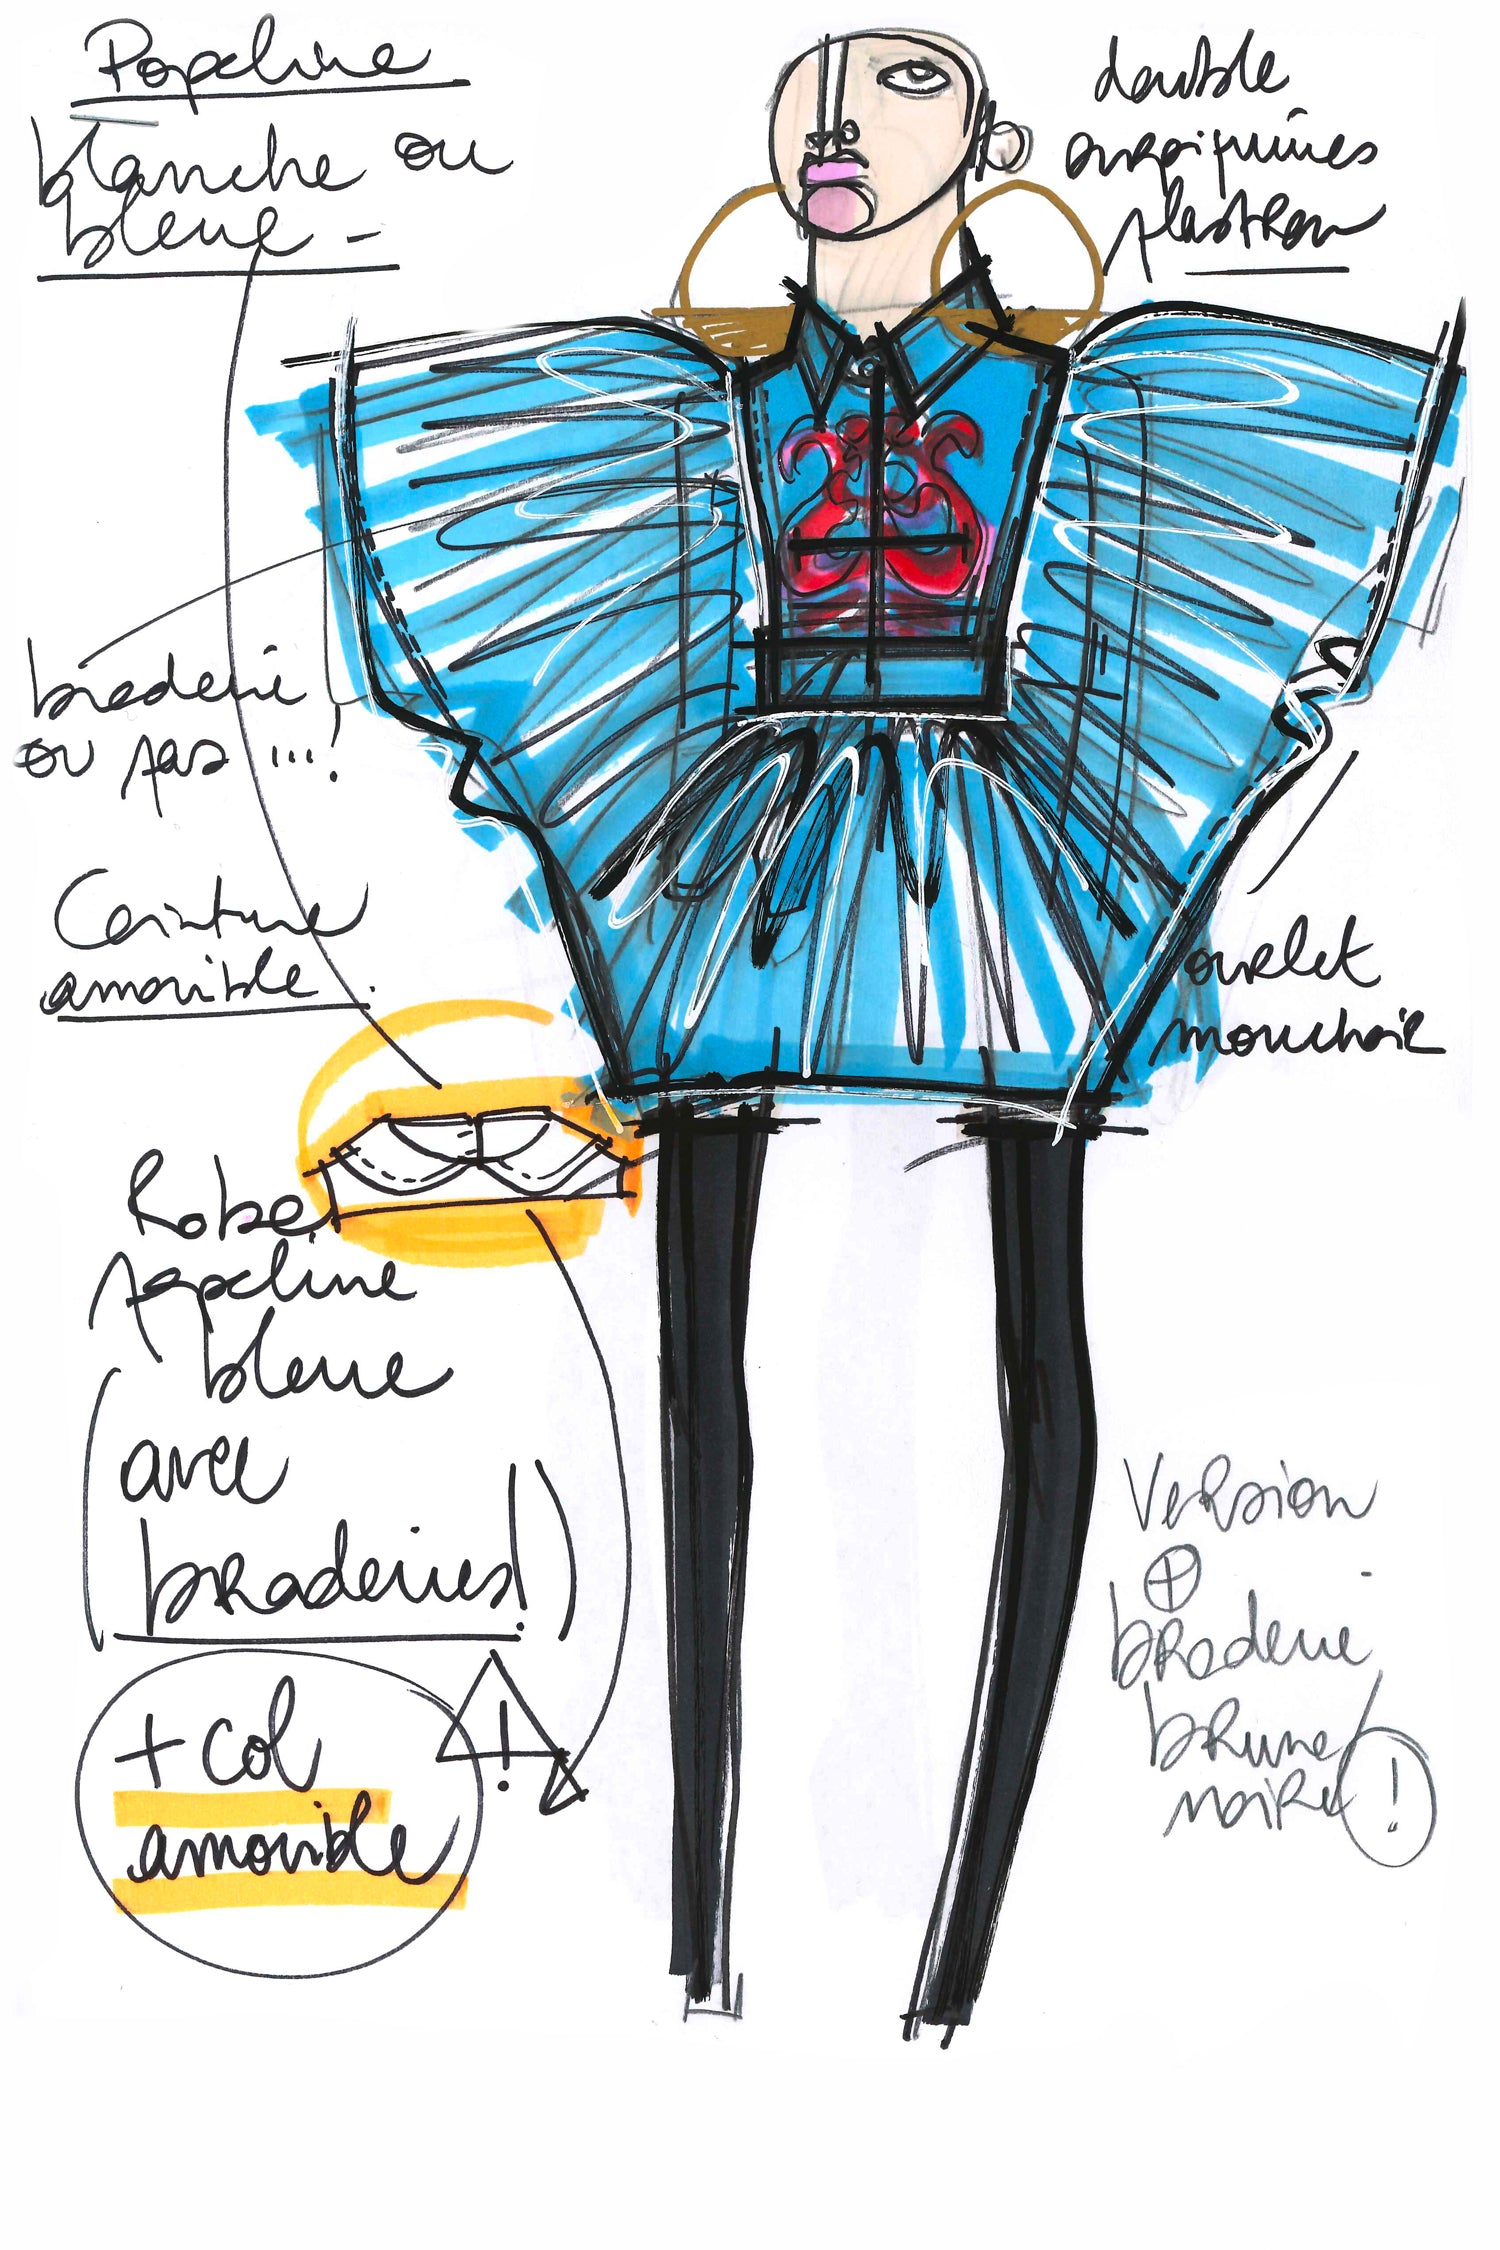 Popeline
blanche ou
bleue -
double
surpiqûres
plastron
broderie
ou pas ...!
Ceinture
amovible.
ourlet
mouchoir
Robe
popeline
bleue
(avec
broderies!)
+ col
amovible
!
Version
+
broderie
brune/
noire !